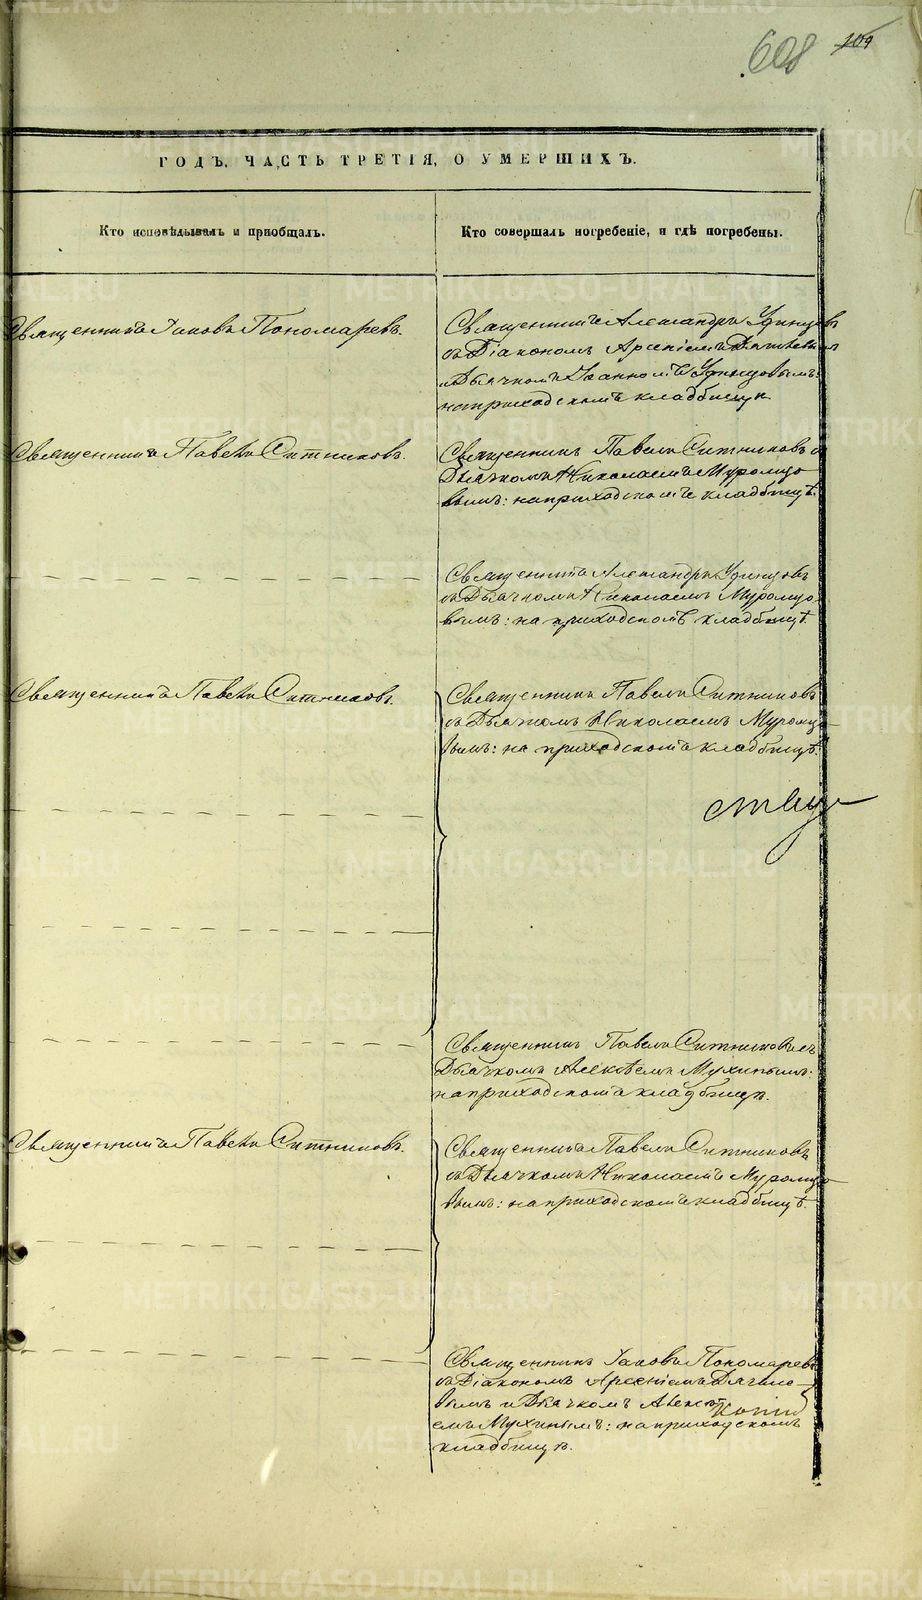 608 109
ГОДЪ, ЧАСТЬ ТРЕТІЯ, О УМЕРШИХЪ.
Кто исповѣдывалъ и пріобщалъ.
Кто совершалъ погребеніе, и гдѣ погребены.
Священникъ Іаковъ Пономаревъ.
Священникъ Александръ Удинцовъ
съ Діакономъ Арсеніемъ
и Дьячкомъ Іоанномъ Удинцовымъ:
на приходскомъ кладбищѣ.
Священникъ Павелъ Ситниковъ.
Священникъ Павелъ Ситниковъ съ
Дьячкомъ Николаемъ Муромцо-
вымъ: на приходскомъ кладбищѣ.
Священникъ Александръ Удинцовъ
съ Дьячкомъ Николаемъ Муромцо-
вымъ: на приходскомъ кладбищѣ.
Священникъ Павелъ Ситниковъ.
Священникъ Павелъ Ситниковъ
съ Дьячкомъ Николаемъ Муромцо-
вымъ: на приходскомъ кладбищѣ.
Священникъ Павелъ Ситниковъ съ
Дьячкомъ Алексѣемъ Мухинымъ:
на приходскомъ кладбищѣ.
Священникъ Павелъ Ситниковъ.
Священникъ Павелъ Ситниковъ
съ Дьячкомъ Николаемъ Муромцо-
вымъ: на приходскомъ кладбищѣ.
Священникъ Іаковъ Пономаревъ
съ Діакономъ Арсеніемъ
вымъ и Дьячкомъ Алексѣ-
емъ Мухинымъ: на приходскомъ
кладбищѣ.
METRIKI.GASO-URAL.RU